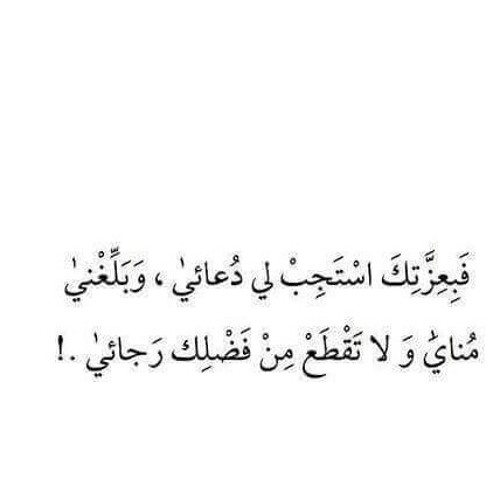 فَبِعِزَّتِكَ اسْتَجِبْ لي دُعائيٰ ، وَبَلِّغْنيٰ
مُنايَٰ وَ لا تَقْطَعْ مِنْ فَضْلِك رَجائيٰ .!